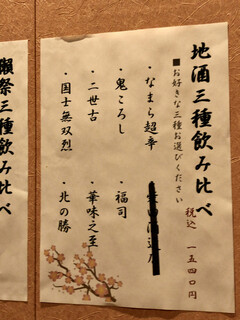 地酒三種飲み比べ
税込 一五四〇円
■お好きな三種お選びください
・なまら超辛
・鬼ころし
・福司
・二世古
・華味之至
・国士無双烈
・北の勝
獺祭三種飲み比べ